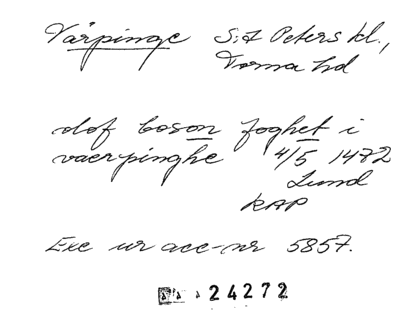 Värpinge S:t Peters kl.,
Torna hd
olof boson foghet i
vaerpinghe 4/5 1472
Lund
RAP
Exc ur acc-nr 5857.
24272